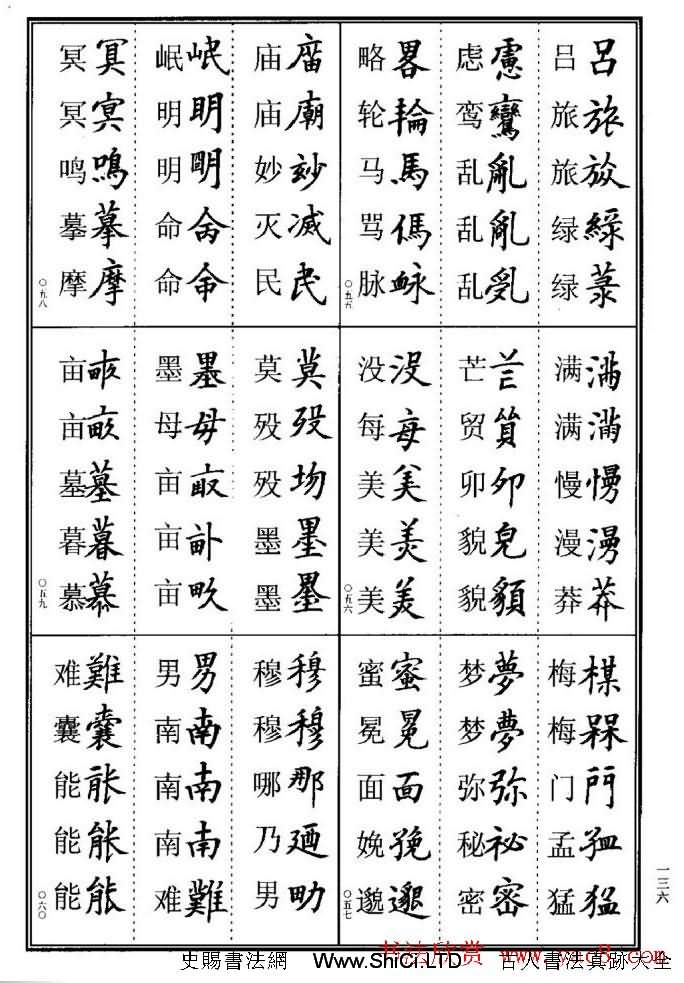 吕呂 旅旅 旅 绿緑 绿菉
虑慮 鸾鸞 乱亂 乱亂 乱
略畧 轮輪 马馬 骂傌 脉衇
〇五五
庙庿 庙廟 妙玅 灭滅 民民
岷岷 明明 明朙 命 命命
冥冥 冥 鸣鳴 摹摹 摩摩
〇五八
满满 满滿 慢慢 漫漫 莽莽
芒芒 贸貿 卯夘 貌皃 貌貌
没没 每每 美美 美羙 美美
〇五六
莫莫 殁殁 殁歾 墨墨 墨墨
墨墨 母母 亩畞 亩 亩畝
亩畝 亩畝 墓墓 暮暮 慕慕
〇五九
梅楳 梅槑 门門 孟孟 猛猛
梦夢 梦夢 弥弥 秘祕 密密
蜜蜜 冕冕 面面 娩娩 邈邈
〇五七
穆穆 穆穆 哪那 乃迺 男
男男 南南 南南 南南 难難
难難 囊囊 能能 能能 能能
〇六〇
一三六
书法欣赏 www.yac8.com
史賜書法網 Www.ShiCi.LTD 古人書法真跡大全